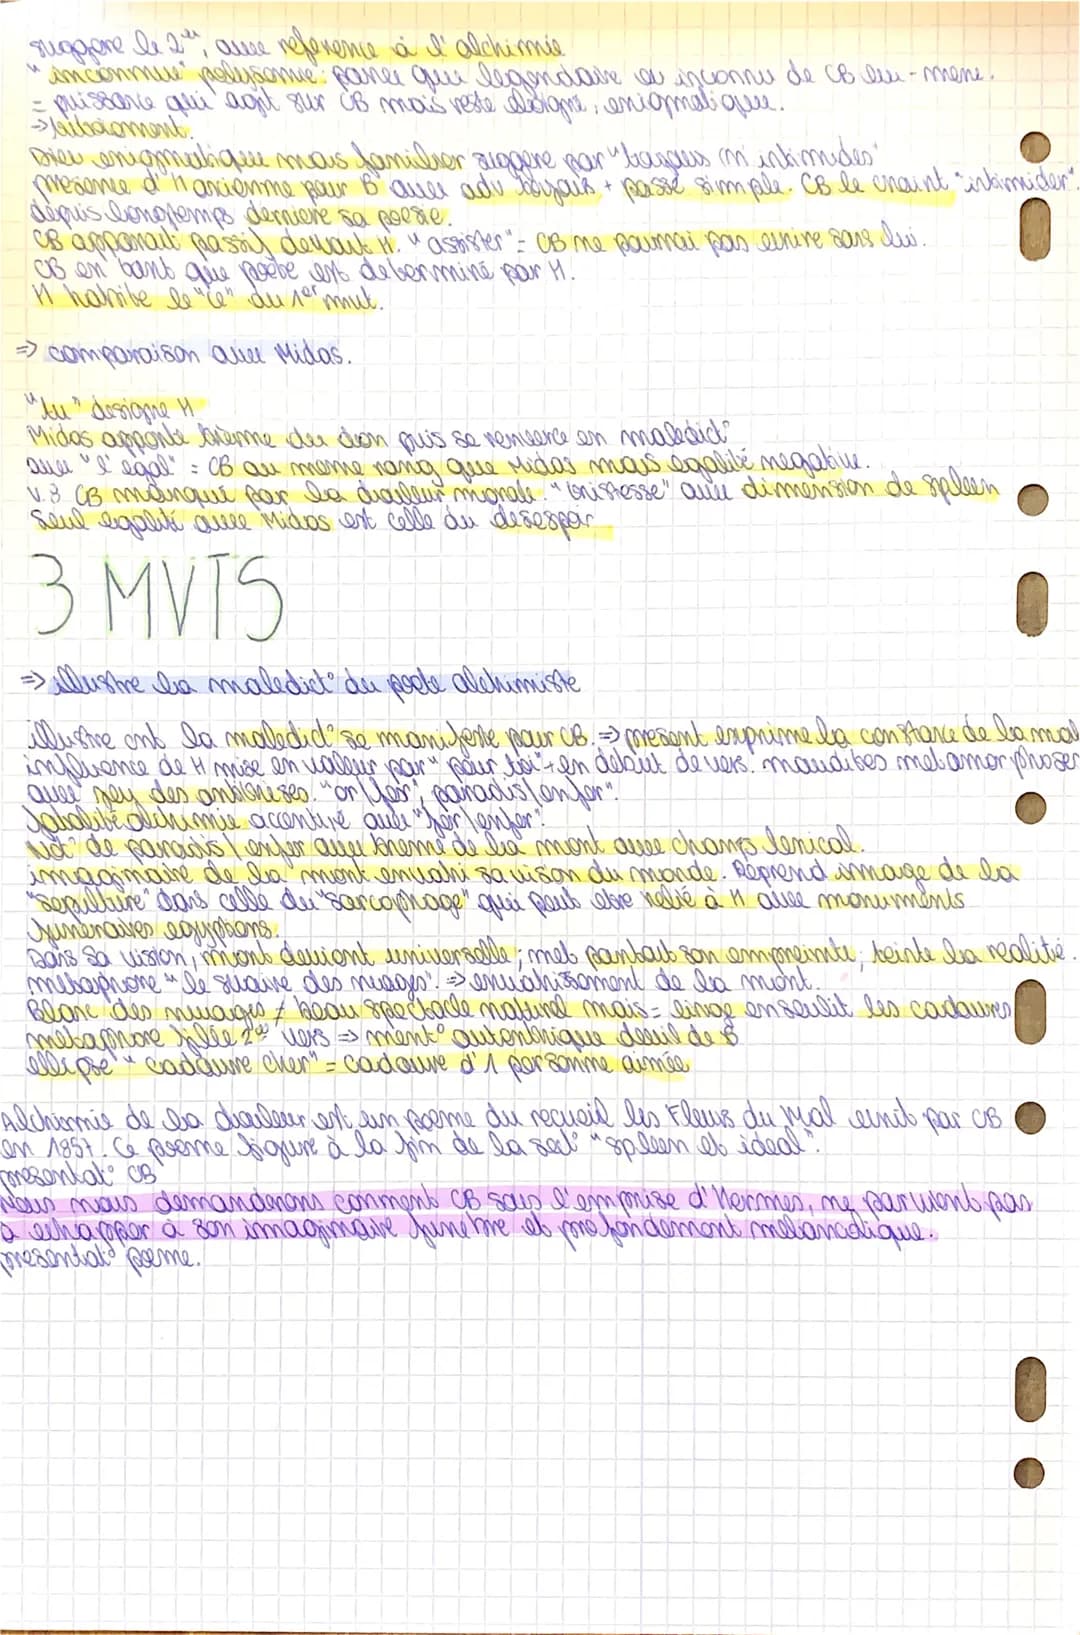 suggere le 2ᵉᵐ, avec reference à l'alchimie
"inconnu" polysemie: parce que legendaire ou inconnu de CB lui-meme.
= puissance qui agit sur CB mais reste eloigné, enigmatique.
=>
Dieu enigmatique mais familier suggere par "toujours m'intimides"
presence d'H ancienne pour B avec adv toujours + passé simple. CB le craint "intimider".
depuis longtemps derriere sa poesie.
CB apparait passif devant H. "assister" = CB ne pourrai pas ecrire sans lui.
CB en tant que poète est determiné par H.
H habite le "ce" du 1er mvt.
=> comparaison avec Midas.
"tu" designe H
Midas apporte theme du don puis se renverse en maledict°
avec "l'egal" = CB au meme rang que Midas mais egalité negative.
v.8 CB marqué par la douleur morale. "tristesse" avec dimension de spleen
Seul egalité avec Midas est celle du desespoir
3 MVTS
=> illustre la maledict° du poete alchimiste
illustre cmt la maledict° se manifeste pour CB. => present exprime la constance de la mal
influence de H mise en valeur par "pour toi" en debut de vers. maudites metamorphoser
avec jeu des antitheses. "or/fer", paradis/enfer".
fatalité alchimie accentué avec "fer/enfer".
Not° de paradis/enfer avec theme de la mort avec champs lexical.
imaginaire de la mort envahi sa vison du monde. Reprend image de la
"sepulture" dans celle du "sarcophage" qui peut etre relié à H avec monuments
funeraires egyptiens.
Dans sa vision, mort devient universelle; met partout son empreinte; teinte la realité.
metaphore "le suaire des nuages". => envahissement de la mort.
Blanc des nuages ≠ beau spectacle naturel mais = linge enseulit les cadavres
metaphore filée 2ᵉ vers => ment° autenthique deuil de B
ellipse "cadavre cher" = cadavre d'1 personne aimée
Alchimie de la douleur est un poeme du recueil les Fleurs du Mal ecrit par CB
en 1857. Ce poeme figure à la fin de la sect° "spleen et ideal".
presentat° CB
Nous nous demanderons comment CB sous l'emprise d'Hermes, ne parvient pas
à echapper à son imaginaire funebre et profondement melancolique.
presentat° poeme.